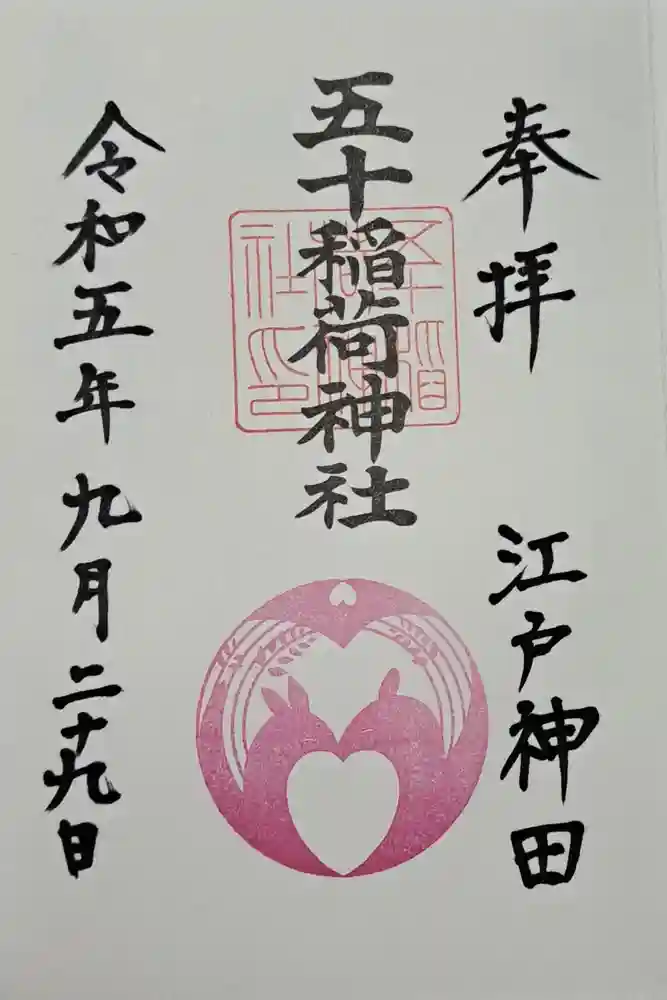 奉拝
江戸神田
五十稲荷神社
五十稲
社印
令和五年九月二十九日